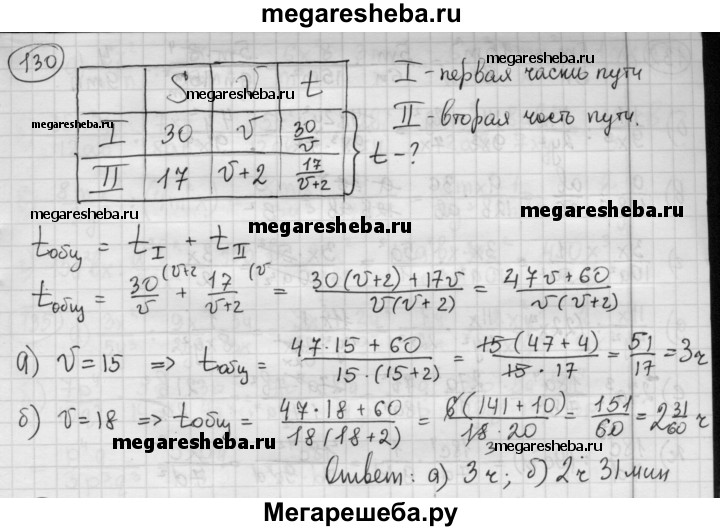 megaresheba.ru
130
S v t
megaresheba.ru
I 30 v 30/v
II 17 v+2 17/(v+2)
t - ?
I - первая часть пути
megaresheba.ru
II - вторая часть пути.
megaresheba.ru
megaresheba.ru
megaresheba.ru
megaresheba.ru
tобщ = tI + tII
tобщ = 30/v (v+2 + 17/(v+2) (v = (30(v+2) + 17v)/(v(v+2)) = (47v + 60)/(v(v+2))
а) v = 15 => tобщ = (47·15 + 60)/(15·(15+2)) = (15(47+4))/(15·17) = 51/17 = 3ч
б) v = 18 => tобщ = (47·18 + 60)/(18(18+2)) = (6(141+10))/(18·20) = 151/60 = 2 31/60 ч
3
megaresheba.ru
megaresheba.ru
Ответ: а) 3ч; б) 2ч 31мин
Мегарешеба.ру